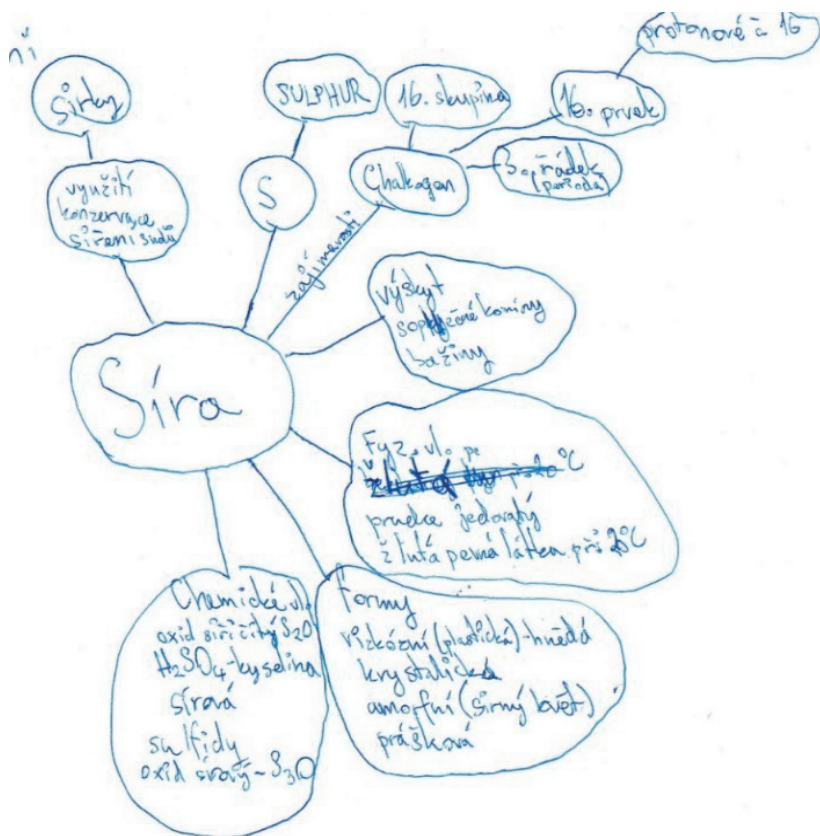 ní
sirky
využití
konzervace
síření sudů
SULPHUR
S
16. skupina
Chalkogen
16. prvek
protonové č 16
3. řádek
(perioda)
zajímavosti
Síra
výskyt
sopečné komíny
bažiny
Fyz. vl. pe
prudce jedovatý
žlutá pevná látka při 20°C
Chemické vl.
oxid siřičitý S2O
H2SO4-kyselina
sírová
sulfidy
oxid sírový-S3O
formy
vizkózní (plastická)-hnědá
krystalická
amorfní (sirný květ)
prášková